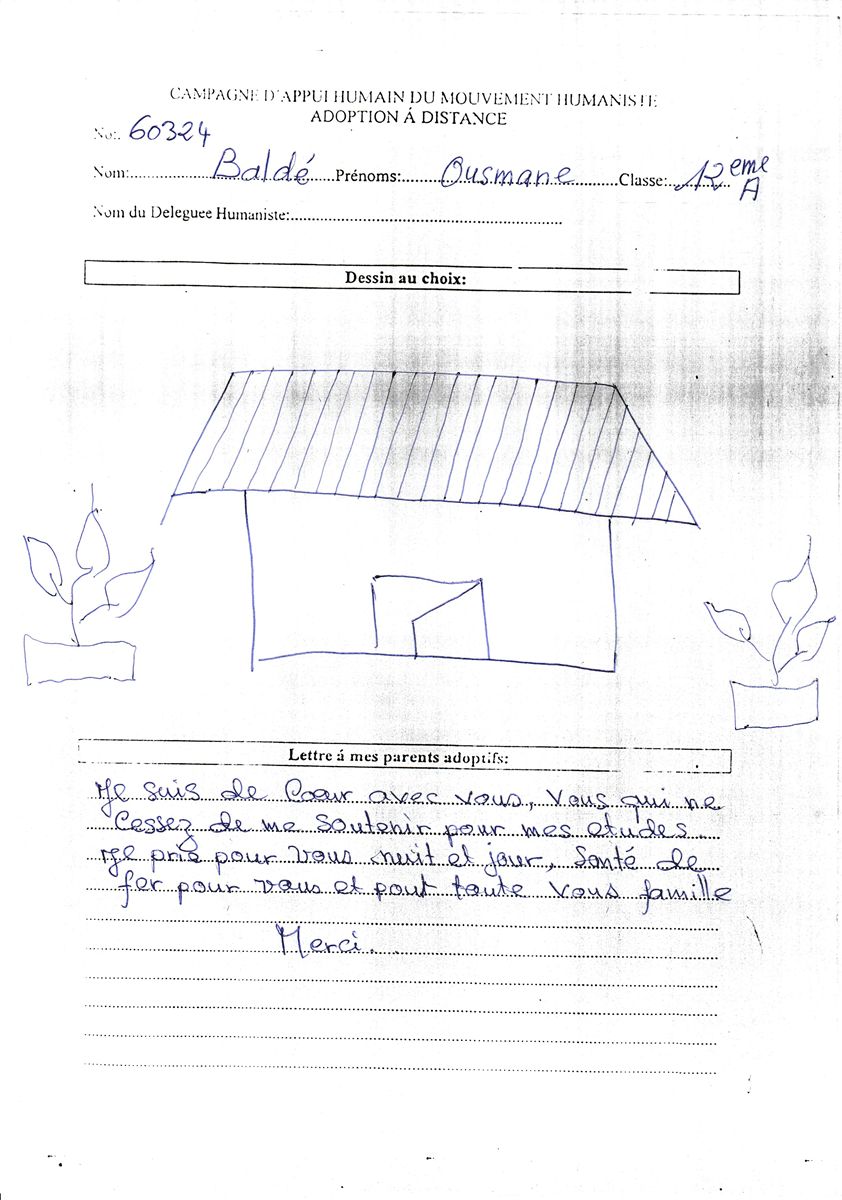 CAMPAGNE D'APPUI HUMAIN DU MOUVEMENT HUMANISTE
ADOPTION Á DISTANCE
No:. 60324
Nom:..................Baldé....Prénoms:........Ousmane..........Classe:..12eme A
Nom du Deleguee Humaniste:..............................................................
Dessin au choix:
Lettre á mes parents adoptifs:
Je suis de Cœur avec vous, Vous qui ne
Cessez de me Soutenir pour mes etudes.
Je prie pour Vous nuit et jour, Santé de
fer pour vous et pout toute vous famille
Merci.